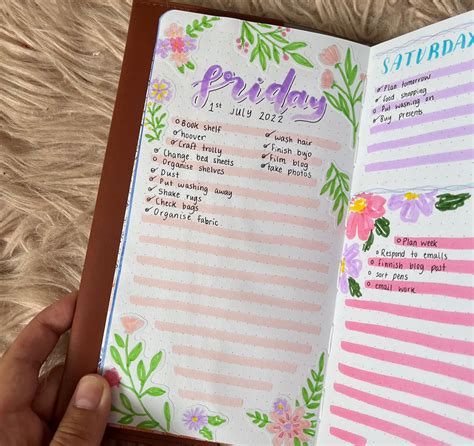 friday
1st JULY 2022
Book shelf
hoover
Craft trolly
Change bed sheets
Organise shelves
Dust
Put washing away
Shake rugs
Check bags
Organise fabric
wash hair
Finish bujo
Film blog
take photos
SATURDAY
Plan tomorrow
food shopping
Put washing on
Buy presents
Plan week
Respond to emails
Finnish blog post
sort pens
email work